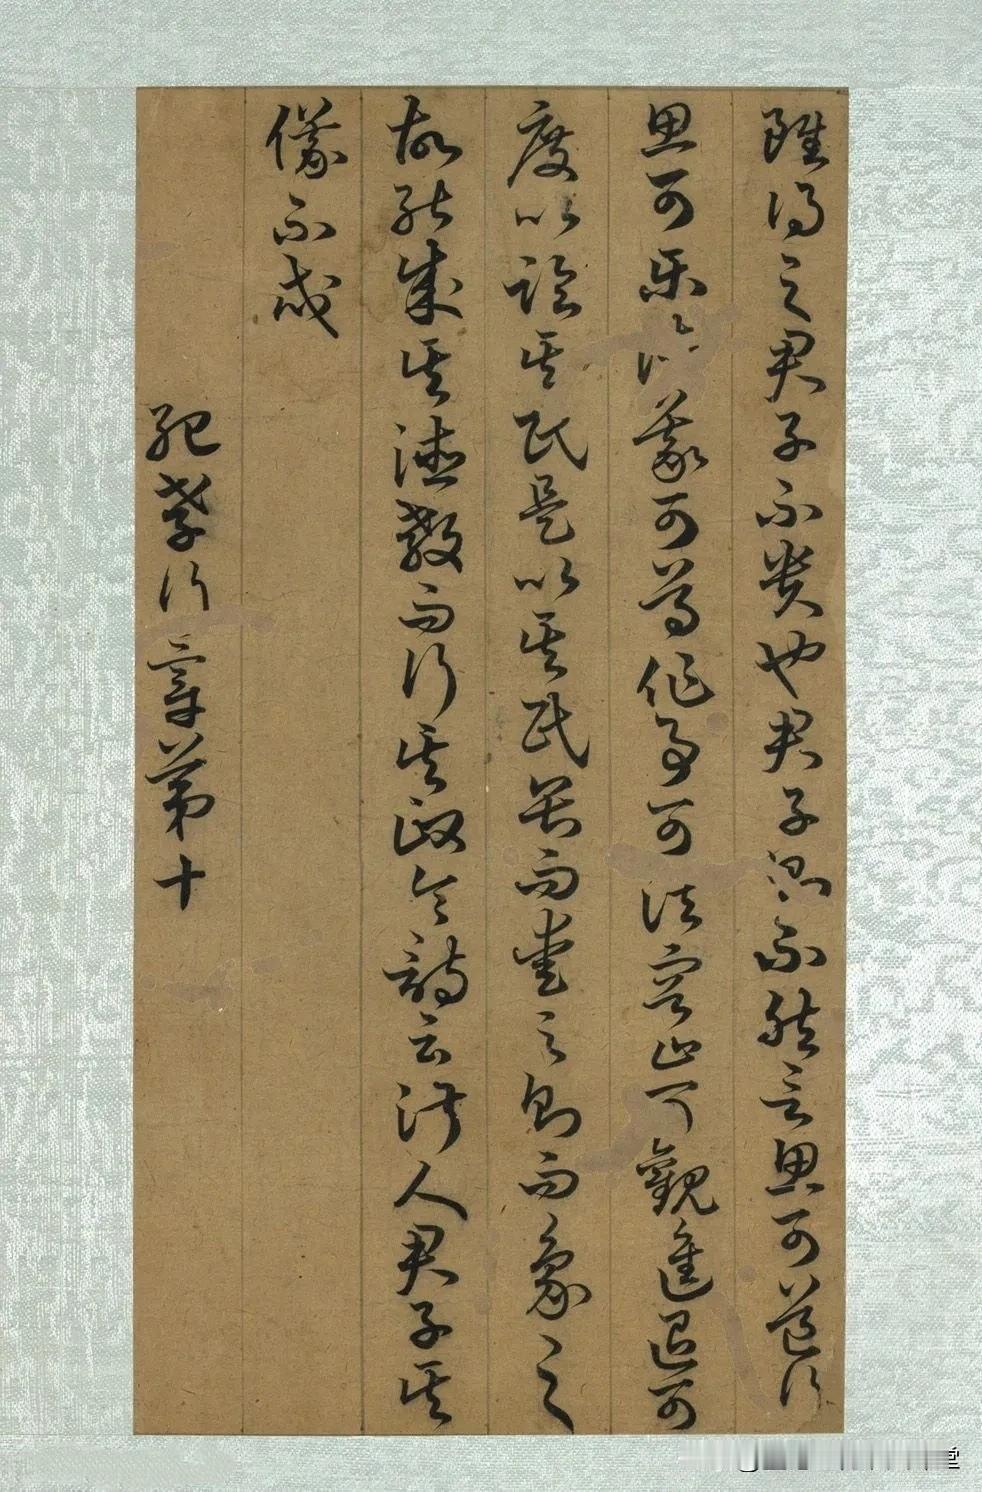 雖得之君子不貴也君子則不然言思可道行
思可樂德義可尊作事可法容止可觀進退可
度以臨其民是以其民畏而愛之則而象之
故能成其德教而行其政令詩云淑人君子其
儀不忒
紀孝行章第十